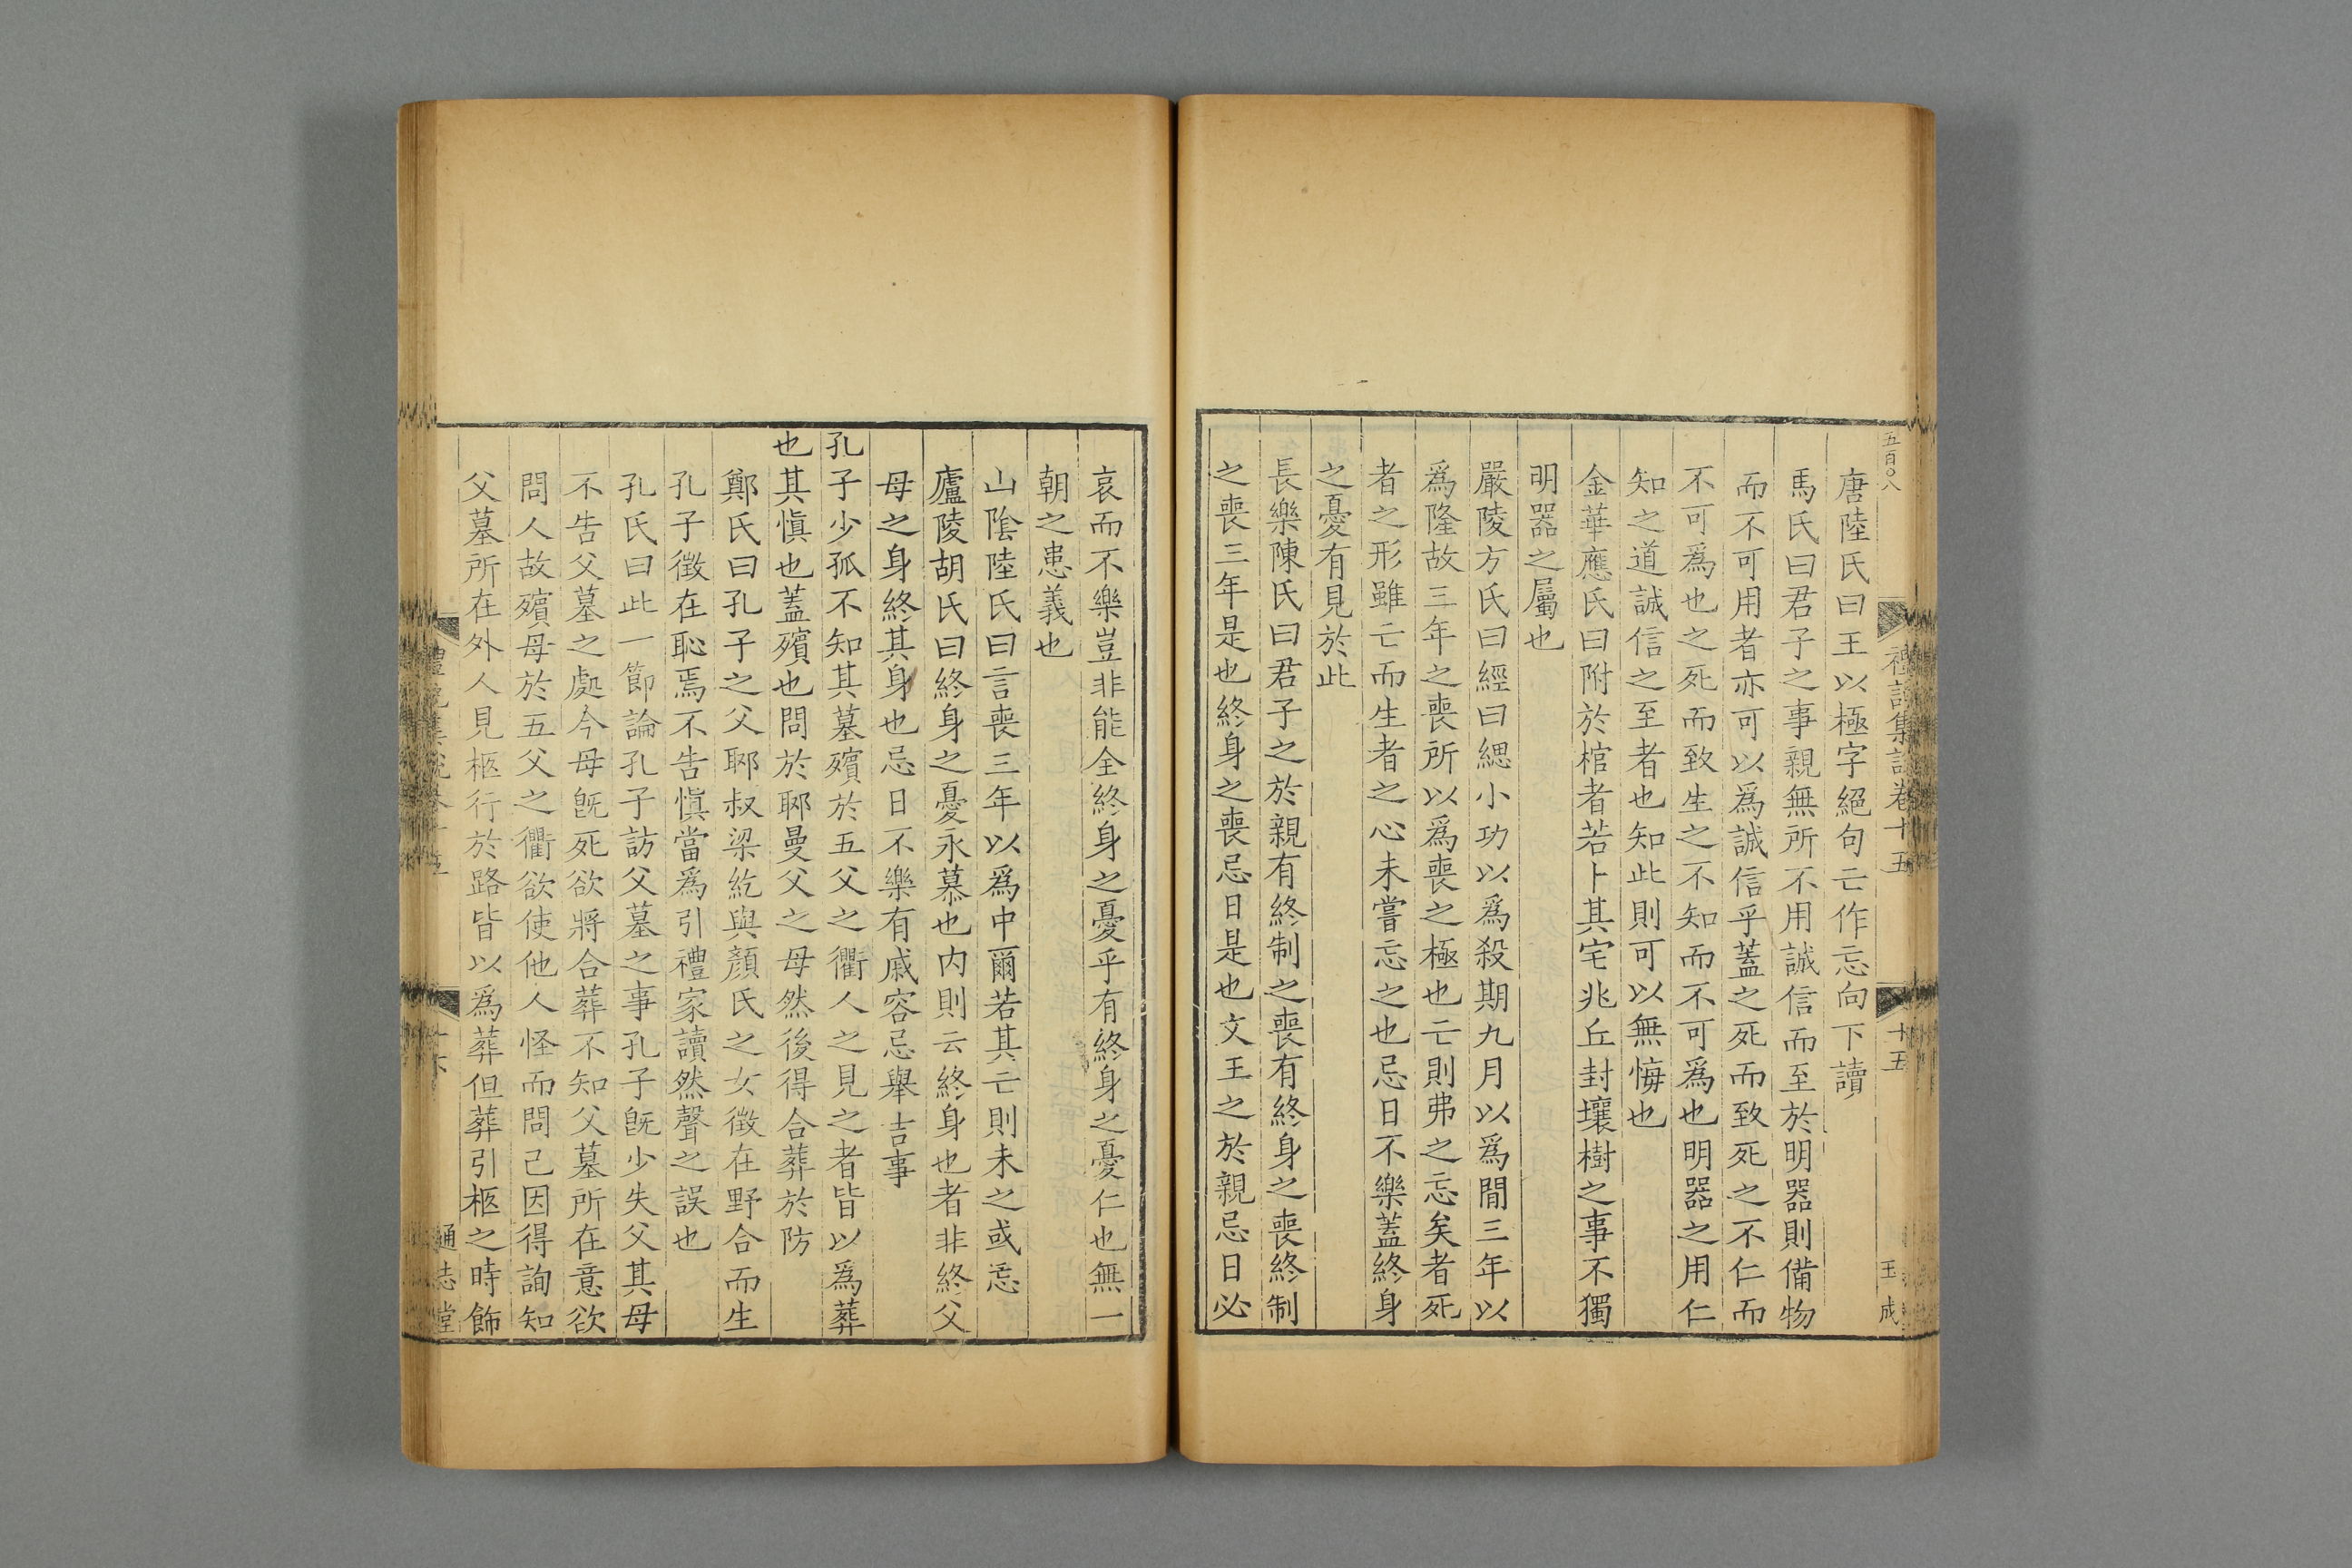 五百〇八
禮記集説卷十五
十五
玉成
唐陸氏曰王以極字絕句亡作忘向下讀
馬氏曰君子之事親無所不用誠信而至於明器則備物
而不可用者亦可以爲誠信乎蓋之死而致死之不仁而
不可爲也之死而致生之不知而不可爲也明器之用仁
知之道誠信之至者也知此則可以無悔也
金華應氏曰附於棺者若卜其宅兆丘封壤樹之事不獨
明器之屬也
嚴陵方氏曰經曰緦小功以爲殺期九月以爲間三年以
爲隆故三年之喪所以爲喪之極也亡則弗之忘矣者死
者之形雖亡而生者之心未嘗忘之也忌日不樂蓋終身
之憂有見於此
長樂陳氏曰君子之於親有終制之喪有終身之喪終制
之喪三年是也終身之喪忌日是也文王之於親忌日必
哀而不樂豈非能全終身之憂乎有終身之憂仁也無一
朝之患義也
山陰陸氏曰言喪三年以爲中爾若其亡則未之或忘
廬陵胡氏曰終身之憂永慕也内則云終身也者非終父
母之身終其身也忌日不樂有戚容忌舉吉事
孔子少孤不知其墓殯於五父之衢人之見之者皆以爲葬
也其愼也蓋殯也問於郰曼父之母然後得合葬於防
鄭氏曰孔子之父郰叔梁紇與顏氏之女徵在野合而生
孔子徵在恥焉不告愼當爲引禮家讀然聲之誤也
孔氏曰此一節論孔子訪父墓之事孔子旣少失父其母
不告父墓之處今母旣死欲將合葬不知父墓所在意欲
問人故殯母於五父之衢欲使他人怪而問己因得詢知
父墓所在外人見柩行於路皆以爲葬但葬引柩之時飾
通志堂